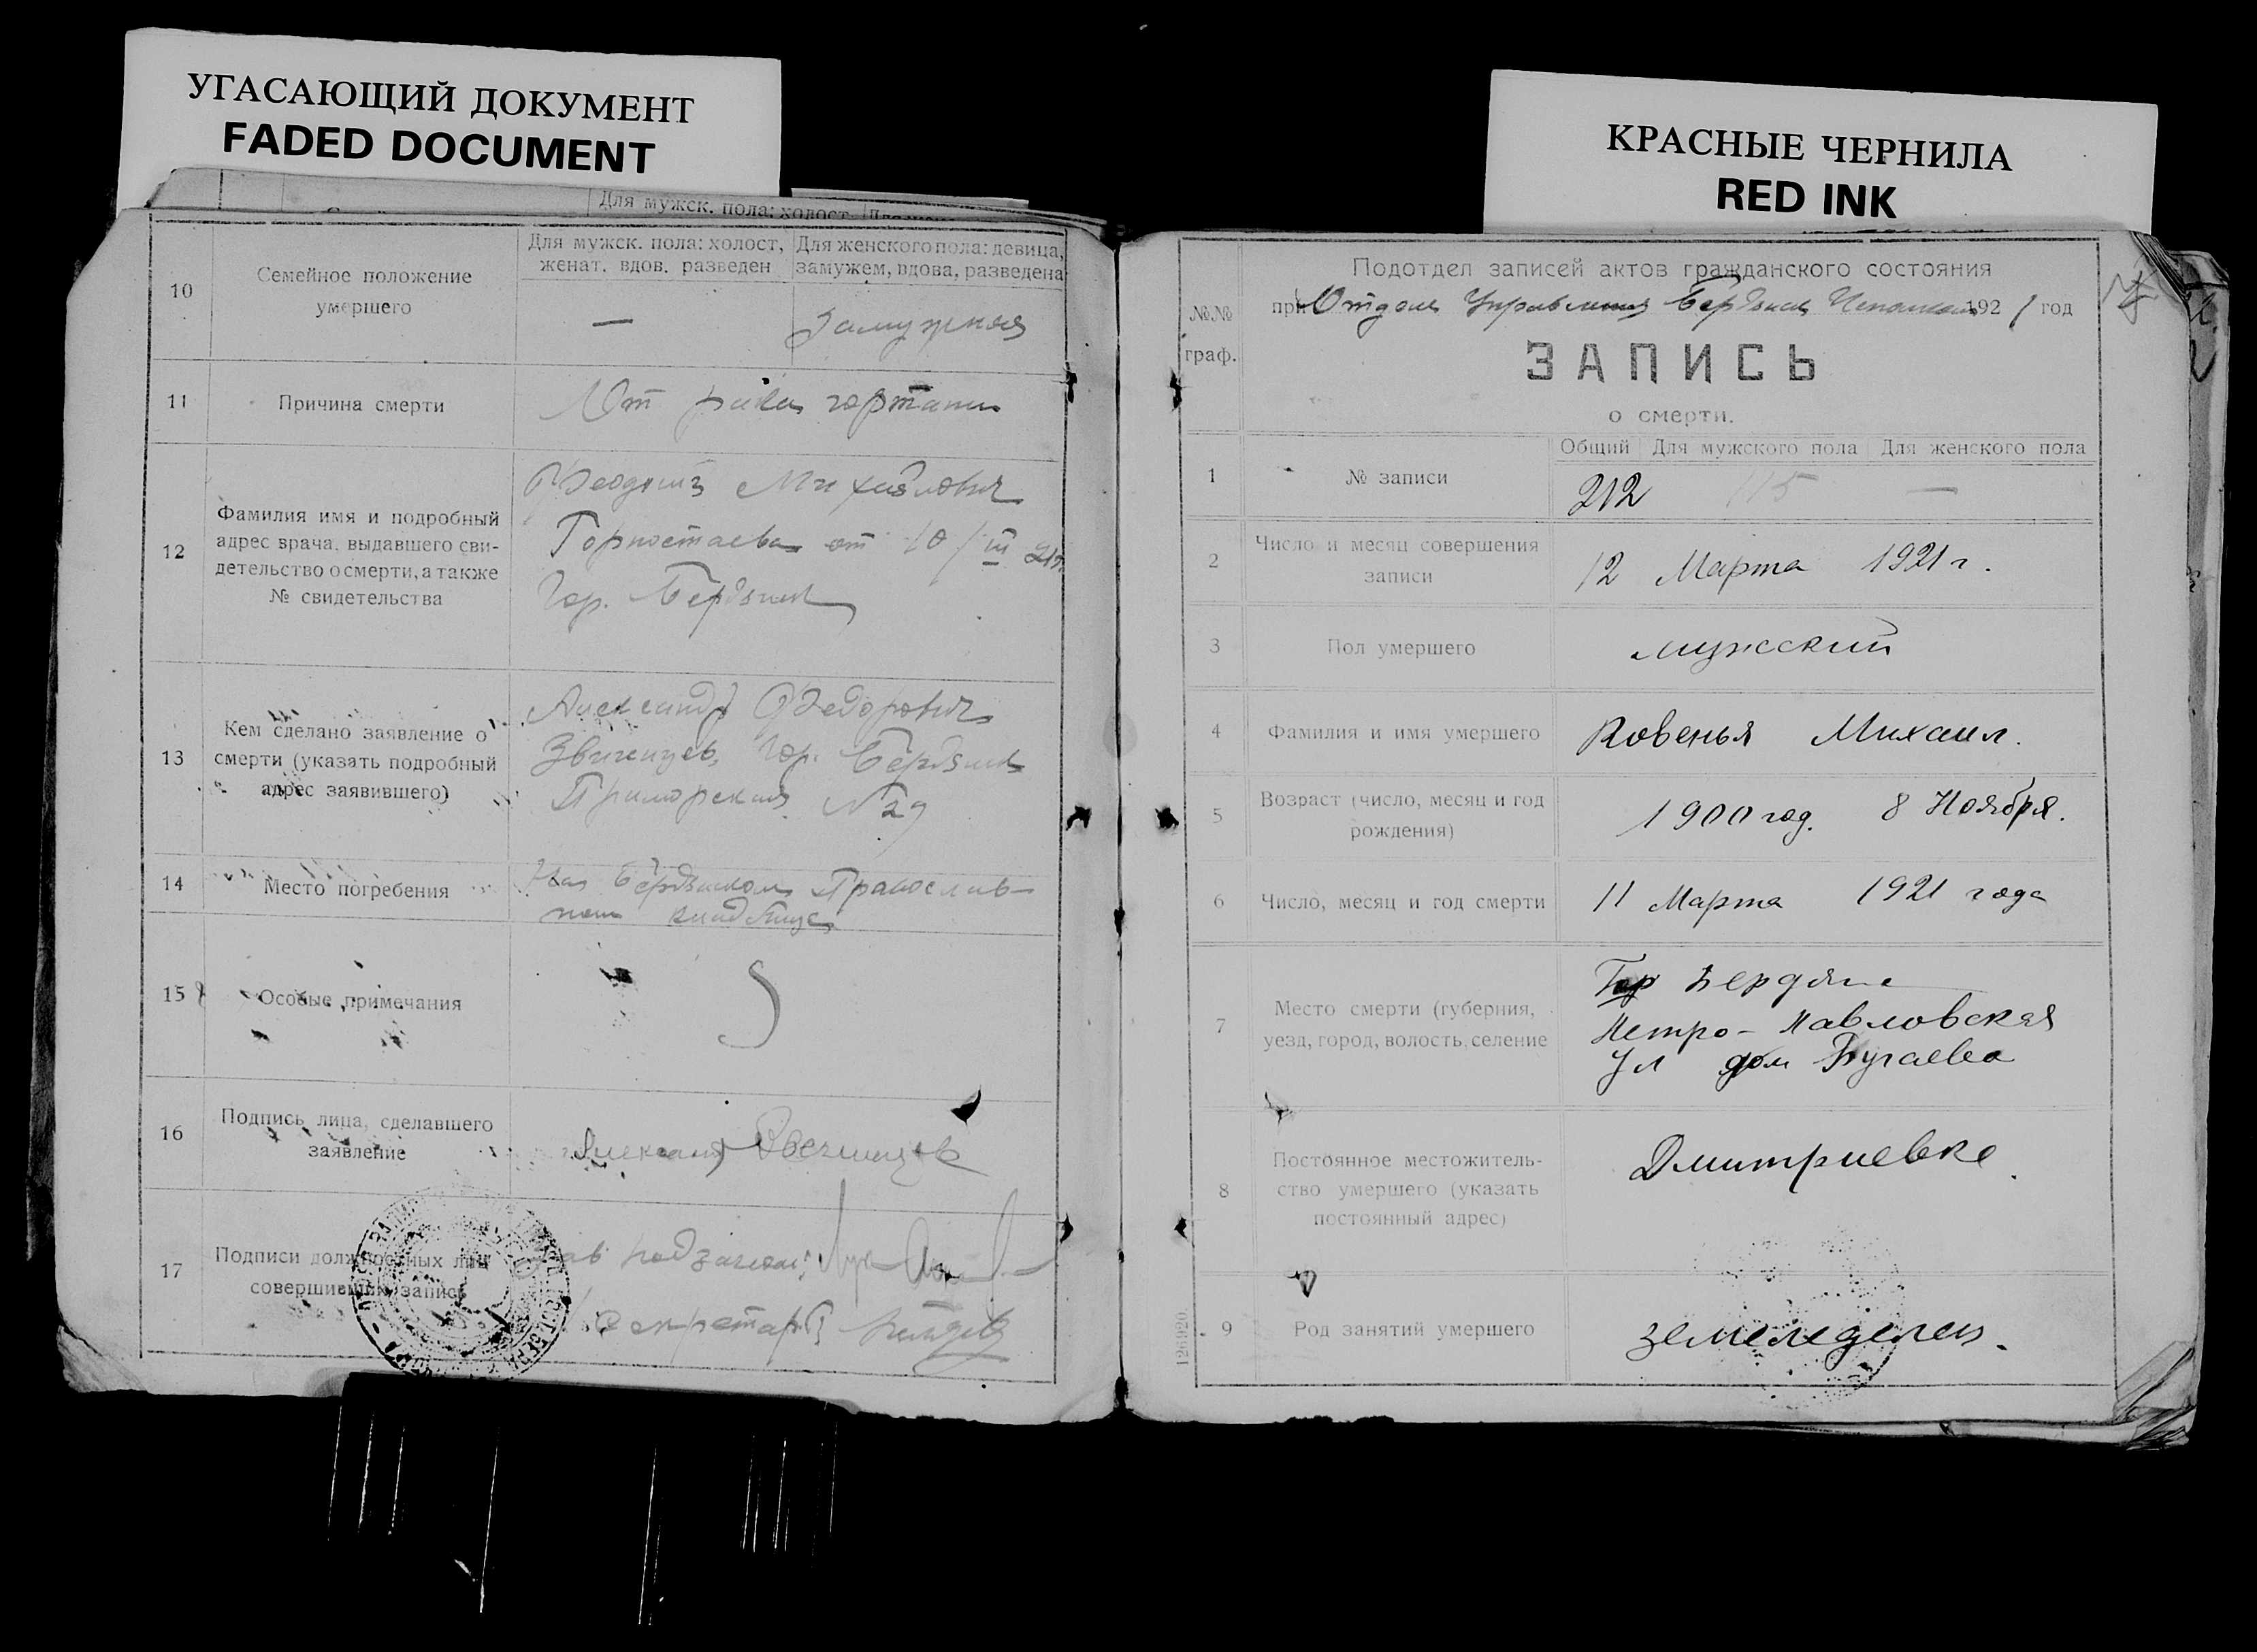 УГАСАЮЩИЙ ДОКУМЕНТ
FADED DOCUMENT
КРАСНЫЕ ЧЕРНИЛА
RED INK
Для мужск. пола: холост.
10
Семейное положение
умершего
Для мужск. пола: холост,
женат, вдов. разведен
Для женского пола: девица,
замужем, вдова, разведена
—
Замужняя
11
Причина смерти
От рака гортани
12
Фамилия имя и подробный
адрес врача, выдавшего сви-
детельство о смерти, а также
№ свидетельства
Михайлович
Горностаева от 10/III 21г.
Гор. Бердянск
13
Кем сделано заявление о
смерти (указать подробный
адрес заявившего)
Александр Федорович
Гор. Бердянск
Приморская № 29
14
Место погребения
На Бердянском Православ-
ном кладбище
15
Особые примечания
16
Подпись лица, сделавшего
заявление
Александр
17
Подписи должностных лиц
совершивших запись
Зав подзагсом:
Секретарь
№№
граф.
Подотдел записей актов гражданского состояния
при Отделе Управления Бердянск 1921 год
ЗАПИСЬ
о смерти.
1
№ записи
Общий Для мужского пола Для женского пола
212 115 —
2
Число и месяц совершения
записи
12 Марта 1921 г.
3
Пол умершего
мужский
4
Фамилия и имя умершего
Ковенья Михаил.
5
Возраст (число, месяц и год
рождения)
1900 год. 8 Ноября.
6
Число, месяц и год смерти
11 Марта 1921 года
7
Место смерти (губерния,
уезд, город, волость, селение
Гор Бердянс
Петро-Павловская
Ул дом Бугаева
8
Постоянное местожитель-
ство умершего (указать
постоянный адрес)
Дмитриевке.
9
Род занятий умершего
земеледелец.
126920.